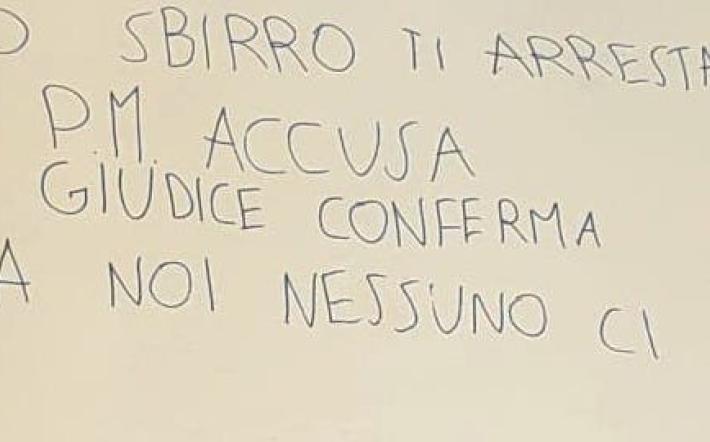 O SBIRRO TI ARRESTA
P.M. ACCUSA
GIUDICE CONFERMA
A NOI NESSUNO CI